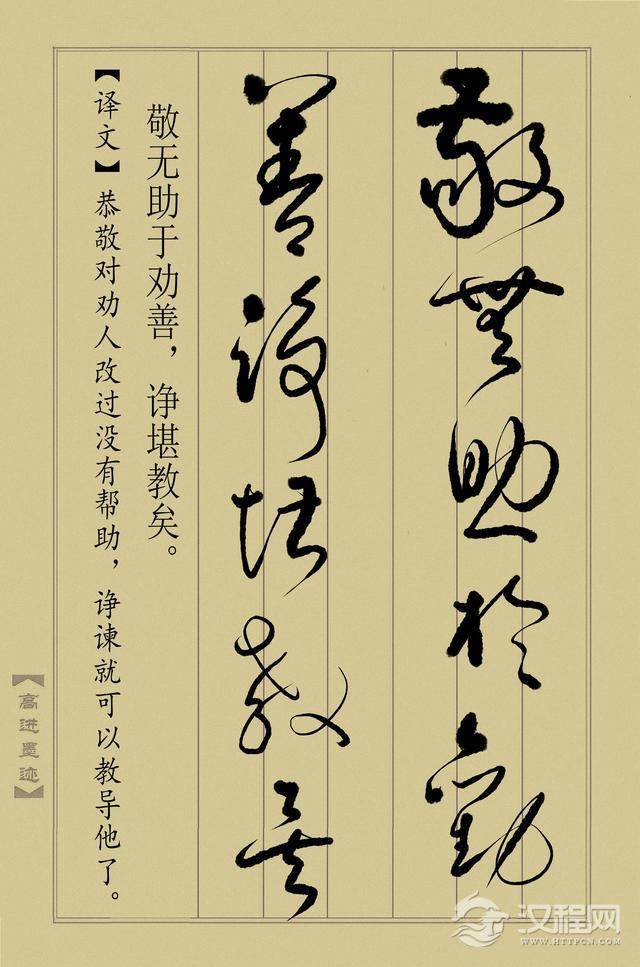 敬無助於勸
善諍堪教矣
敬无助于劝善，诤堪教矣。
【译文】恭敬对劝人改过没有帮助，诤谏就可以教导他了。
【高进墨迹】
汉程网
WWW.HTTPCN.COM